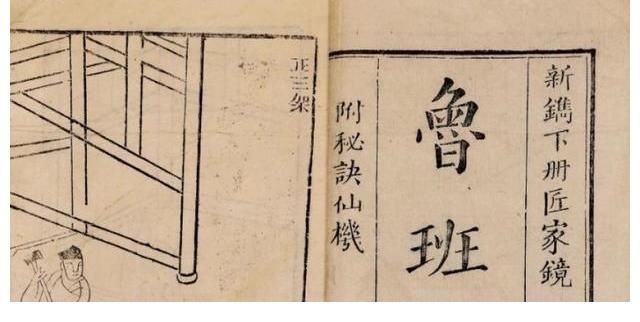 新鐫下册匠家鏡
魯班
附秘訣仙機
正三架